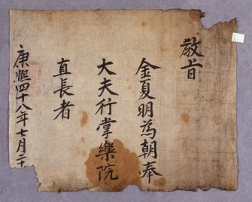 敎旨
金夏明為朝奉
大夫行掌樂院
直長者
康熙四十八年七月二十